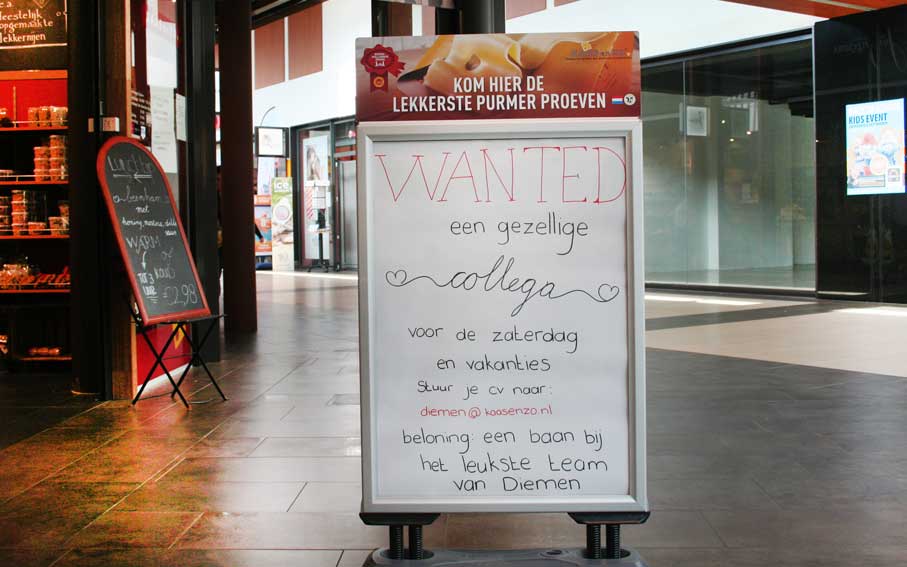 KOM HIER DE
LEKKERSTE PURMER PROEVEN
WANTED
een gezellige
collega
voor de zaterdag
en vakanties
Stuur je cv naar:
diemen@kaasenzo.nl
beloning: een baan bij
het leukste team
van Diemen
WARM
KOUD
TOT 3
UUR
€2,98
KIDS EVENT